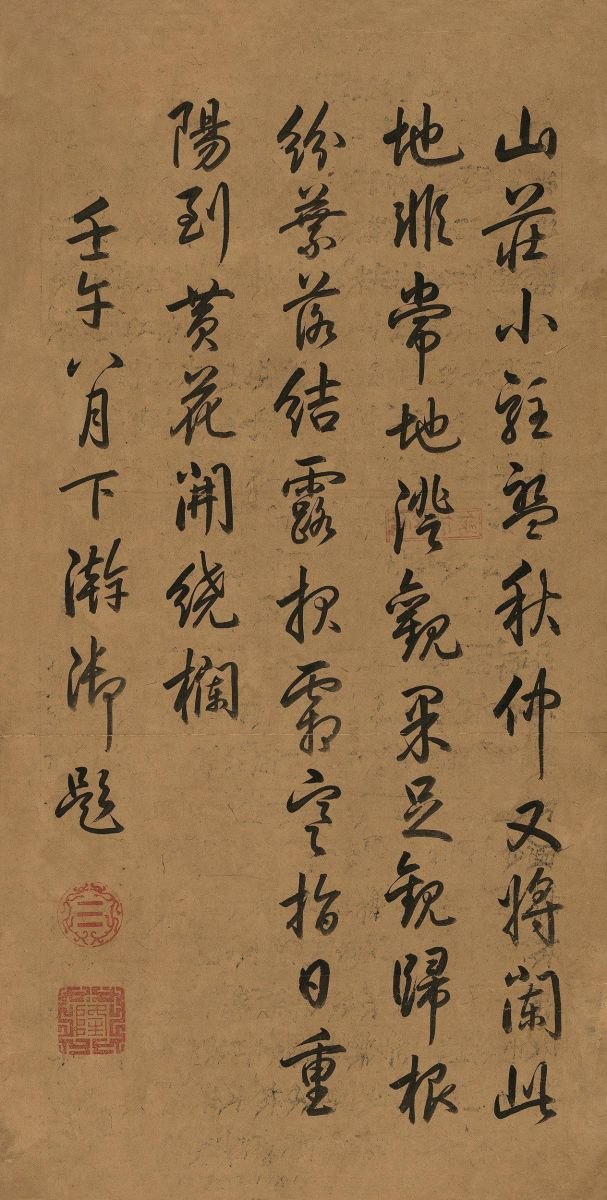 山莊小駐盤秋仲又將闌此
地非常地澄觀果足觀歸根
紛葉落結露報霜寒指日重
陽到黃花開繞欄
壬午八月下澣御題
隆